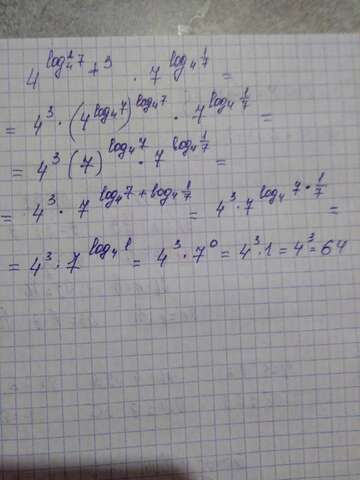 4^{log_4^2 7 + 3} · 7^{log_4 \frac{1}{7}} =
= 4^3 · (4^{log_4 7})^{log_4 7} · 7^{log_4 \frac{1}{7}} =
= 4^3 (7)^{log_4 7} · 7^{log_4 \frac{1}{7}} =
= 4^3 · 7^{log_4 7 + log_4 \frac{1}{7}} = 4^3 · 7^{log_4 7 · \frac{1}{7}} =
= 4^3 · 7^{log_4 1} = 4^3 · 7^0 = 4^3 · 1 = 4^3 = 64